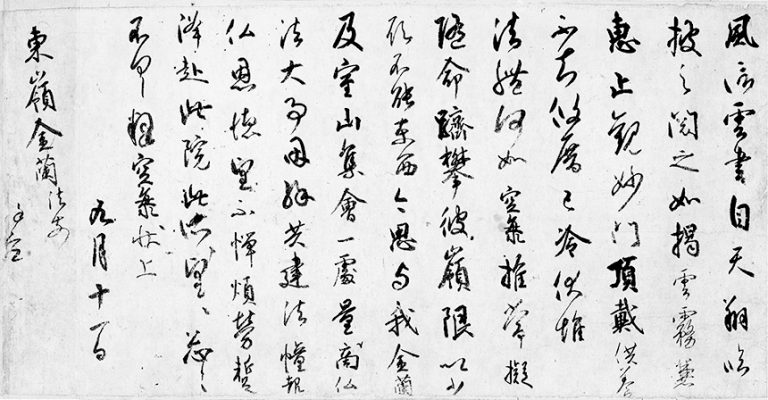 風信雲書自天翔臨
披之閱之如揭雲霧兼
惠止觀妙門頂戴供養
不知攸厝已冷伏惟
法體何如空海推常擬
隨命躋攀彼嶺限以少
願不能東西今思与我金蘭
及室山集會一處量商仏
法大事因縁共建法幢報
仏恩徳望不憚煩勞蹔
降赴此院此所望〻忩〻
不具釋空海状上
九月十一日
東嶺金蘭法前
謹空